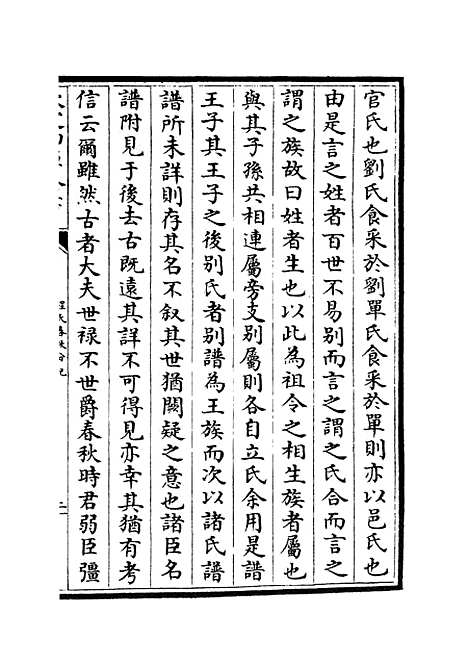 官氏也劉氏食采於劉單氏食采於單則亦以邑氏也
由是言之姓者百世不易別而言之謂之氏合而言之
謂之族故曰姓者生也以此為祖令之相生族者屬也
與其子孫共相連屬旁支別屬則各自立氏余用是譜
王子其王子之後別氏者別譜為王族而次以諸氏譜
譜所未詳則存其名不叙其世猶闕疑之意也諸臣名
譜附見于後去古既遠其詳不可得見亦幸其猶有考
信云爾雖然古者大夫世禄不世爵春秋時君弱臣彊
程氏春秋分記
二